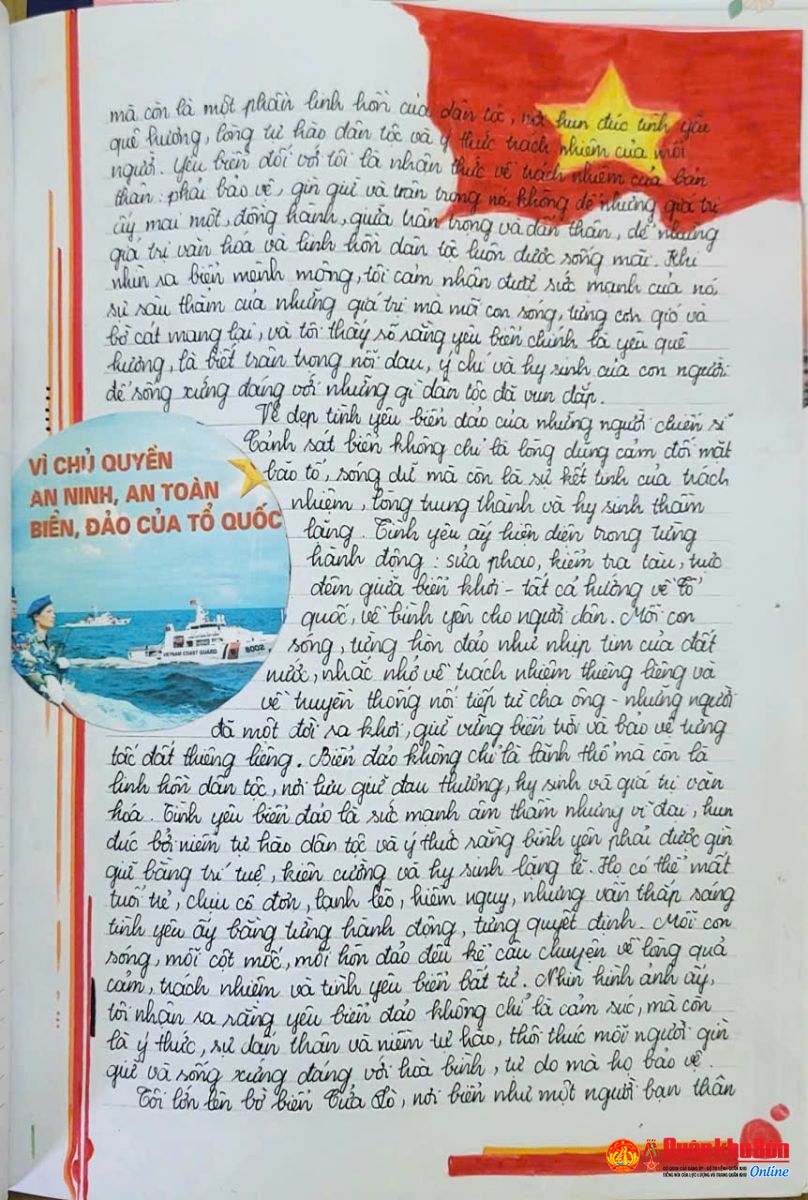 mà còn là một phần linh hồn của dân tộc, nơi hun đúc tình yêu
quê hương, lòng tự hào dân tộc và ý thức trách nhiệm của mỗi
người. Yêu biển đối với tôi là nhận thức về trách nhiệm của bản
thân: phải bảo vệ, gìn giữ và trân trọng nó, không để những giá trị
ấy mai một, đồng hành, giữa trân trọng và dấn thân, để những
giá trị văn hóa và linh hồn dân tộc luôn được sống mãi. Khi
nhìn ra biển mênh mông, tôi cảm nhận được sức mạnh của nó,
sự sâu thẳm của những giá trị mà mỗi con sóng, từng cơn gió và
bờ cát mang lại, và tôi thấy rõ rằng yêu biển chính là yêu quê
hương, là biết trân trọng nỗi đau, ý chí và hy sinh của con người
để sống xứng đáng với những gì dân tộc đã vun đắp.
Vẻ đẹp tình yêu biển đảo của những người chiến sĩ
Cảnh sát biển không chỉ là lòng dũng cảm đối mặt
bão tố, sóng dữ mà còn là sự kết tinh của trách
nhiệm, lòng trung thành và hy sinh thầm
lặng. Tình yêu ấy hiện diện trong từng
hành động: sửa phao, kiểm tra tàu, trực
đêm giữa biển khơi - tất cả hướng về Tổ
quốc, về bình yên cho người dân. Mỗi con
sóng, từng hòn đảo như nhịp tim của đất
nước, nhắc nhở về trách nhiệm thiêng liêng và
về truyền thống nối tiếp từ cha ông - những người
đã một đời ra khơi, giữ vững biển trời và bảo vệ từng
tấc đất thiêng liêng. Biển đảo không chỉ là lãnh thổ mà còn là
linh hồn dân tộc, nơi lưu giữ đau thương, hy sinh và giá trị văn
hoá. Tình yêu biển đảo là sức mạnh âm thầm nhưng vĩ đại, hun
đúc bởi niềm tự hào dân tộc và ý thức rằng bình yên phải được gìn
giữ bằng trí tuệ, kiên cường và hy sinh lặng lẽ. Họ có thể mất
tuổi trẻ, chịu cô đơn, lạnh lẽo, hiểm nguy, nhưng vẫn thắp sáng
tình yêu ấy bằng từng hành động, từng quyết định. Mỗi con
sóng, mỗi cột mốc, mỗi hòn đảo đều kể câu chuyện về lòng quả
cảm, trách nhiệm và tình yêu biển bất tử. Nhìn hình ảnh ấy,
tôi nhận ra rằng yêu biển đảo không chỉ là cảm xúc, mà còn
là ý thức, sự dấn thân và niềm tự hào, thôi thúc mỗi người gìn
giữ và sống xứng đáng với hoà bình, tự do mà họ bảo vệ.
Tôi lớn lên bờ biển Cửa Lò, nơi biển như một người bạn thân
VÌ CHỦ QUYỀN
AN NINH, AN TOÀN
BIỂN, ĐẢO CỦA TỔ QUỐC
VIETNAM COAST GUARD 8002
Quân khu Bốn
Online